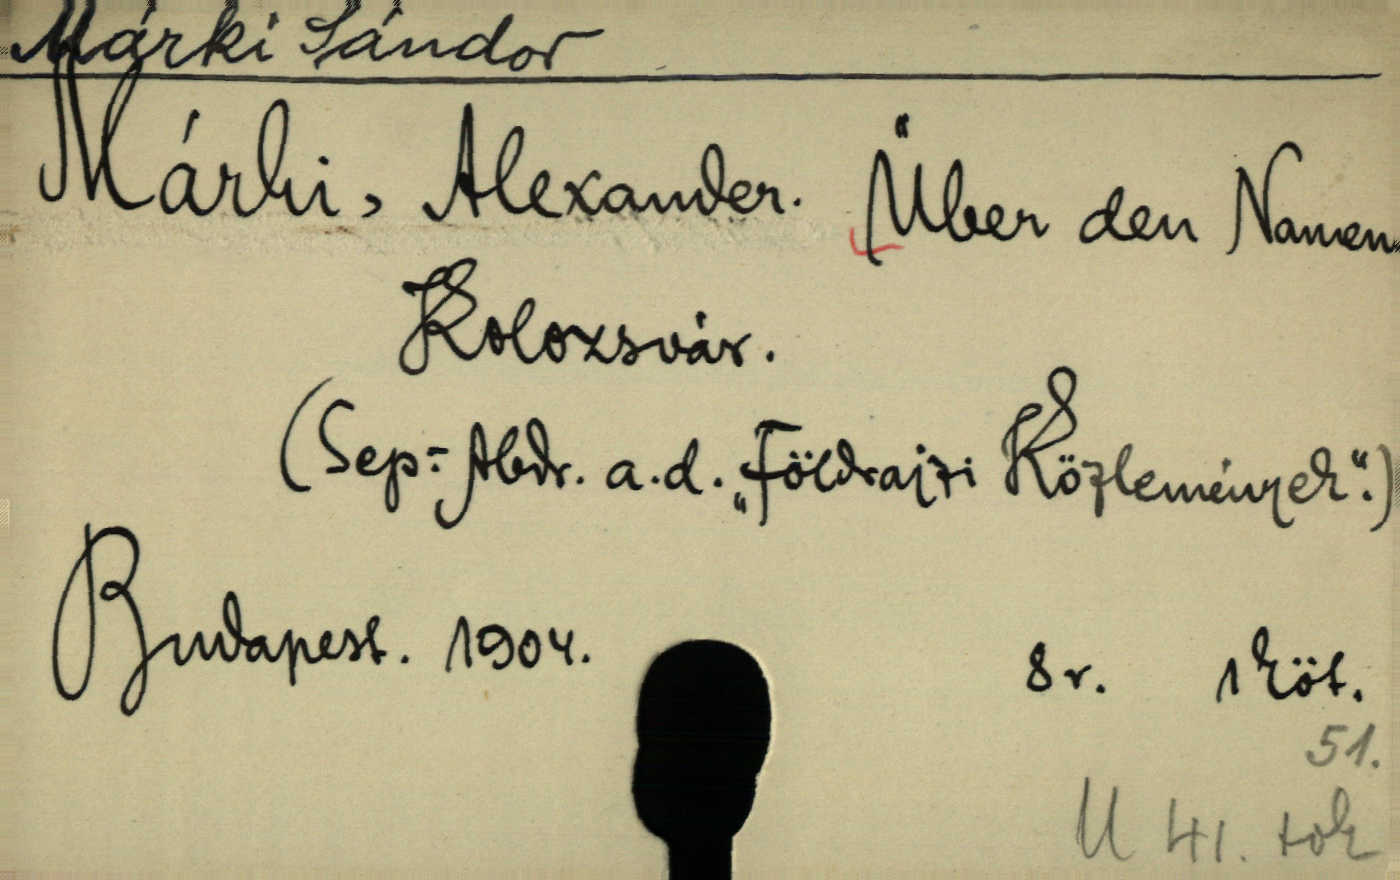 Márki Sándor
Márki, Alexander. Über den Namen
Kolozsvár.
(Sep.-Abdr. a. d. „Földrajzi Közlemények“.)
Budapest. 1904. 8r. 1 köt.
51.
U 41. tok